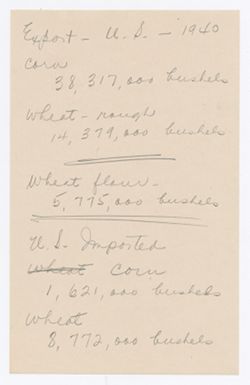 Export - U. S. - 1940
Corn
38,317,000 bushels
Wheat - rough
14,379,000 bushels
Wheat flour -
5,775,000 bushels
U. S. Imported
Wheat Corn
1,621,000 bushels
Wheat
8,772,000 bushels